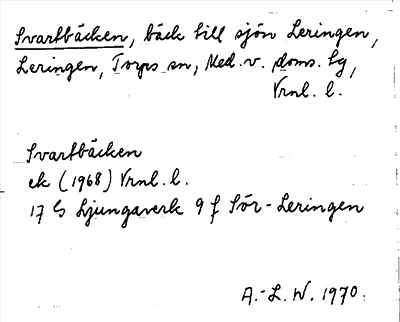 Svartbäcken, bäck till sjön Leringen,
Leringen, Torps sn, Med. v. doms. lg,
Vrnl. l.
Svartbäcken
ek (1968) Vrnl. l.
17 G Ljungaverk 9 f Sör-Leringen
A.-L. W. 1970.